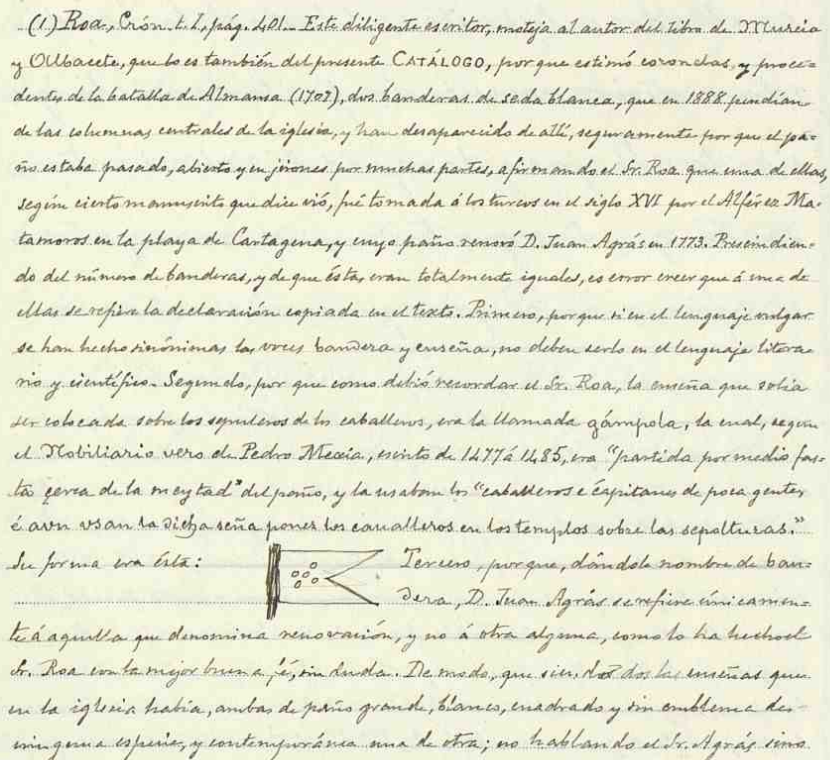 (1) Roa, Crón. t. I, pág. 401.- Este diligente escritor, moteja al autor del libro de Murcia
y Albacete, que lo es también del presente CATÁLOGO, por que estimó coronelas, y proce=
dentes de la batalla de Almansa (1707), dos banderas de seda blanca, que en 1888 pendían
de las columnas centrales de la iglesia, y han desaparecido de allí, seguramente por que el pa=
ño estaba pasado, abierto y en jirones por muchas partes, afirmando el Sr. Roa que una de ellas,
según cierto manuscrito que dice vió, fué tomada á los turcos en el siglo XVI por el Alférez Ma=
tamoros en la playa de Cartagena, y cuyo paño renovó D. Juan Agrás en 1773. Prescindien=
do del número de banderas, y de que éstas eran totalmente iguales, es error creer que á una de
ellas se refiere la declaración copiada en el texto. Primero, porque si en el lenguaje vulgar
se han hecho sinónimas las voces bandera y enseña, no deben serlo en el lenguaje litera=
rio y científico. Segundo, por que como debió recordar el Sr. Roa, la enseña que solía
ser colocada sobre los sepulcros de los caballeros, era la llamada gámpola, la cual, según
el Nobiliario vero de Pedro Mexia, escrito de 1477 á 1485, era "partida por medio fas=
ta çerca de la meytad" del paño, y la usaban los "caballeros e capitanes de poca gente:
é avn vsan la dicha seña poner los caualleros en los templos sobre las sepolturas."
Su forma era ésta: Tercero, porque, dándole nombre de ban=
dera, D. Juan Agrás se refiere únicamen=
te á aquella que denomina renovación, y no á otra alguna, como lo ha hecho el
Sr. Roa con la mejor buena fé, sin duda. De modo, que siendo dos las enseñas que
en la iglesia había, ambas de paño grande, blanco, cuadrado y sin emblema de
ninguna especie, y contemporánea una de otra; no hablando el Sr. Agrás sino